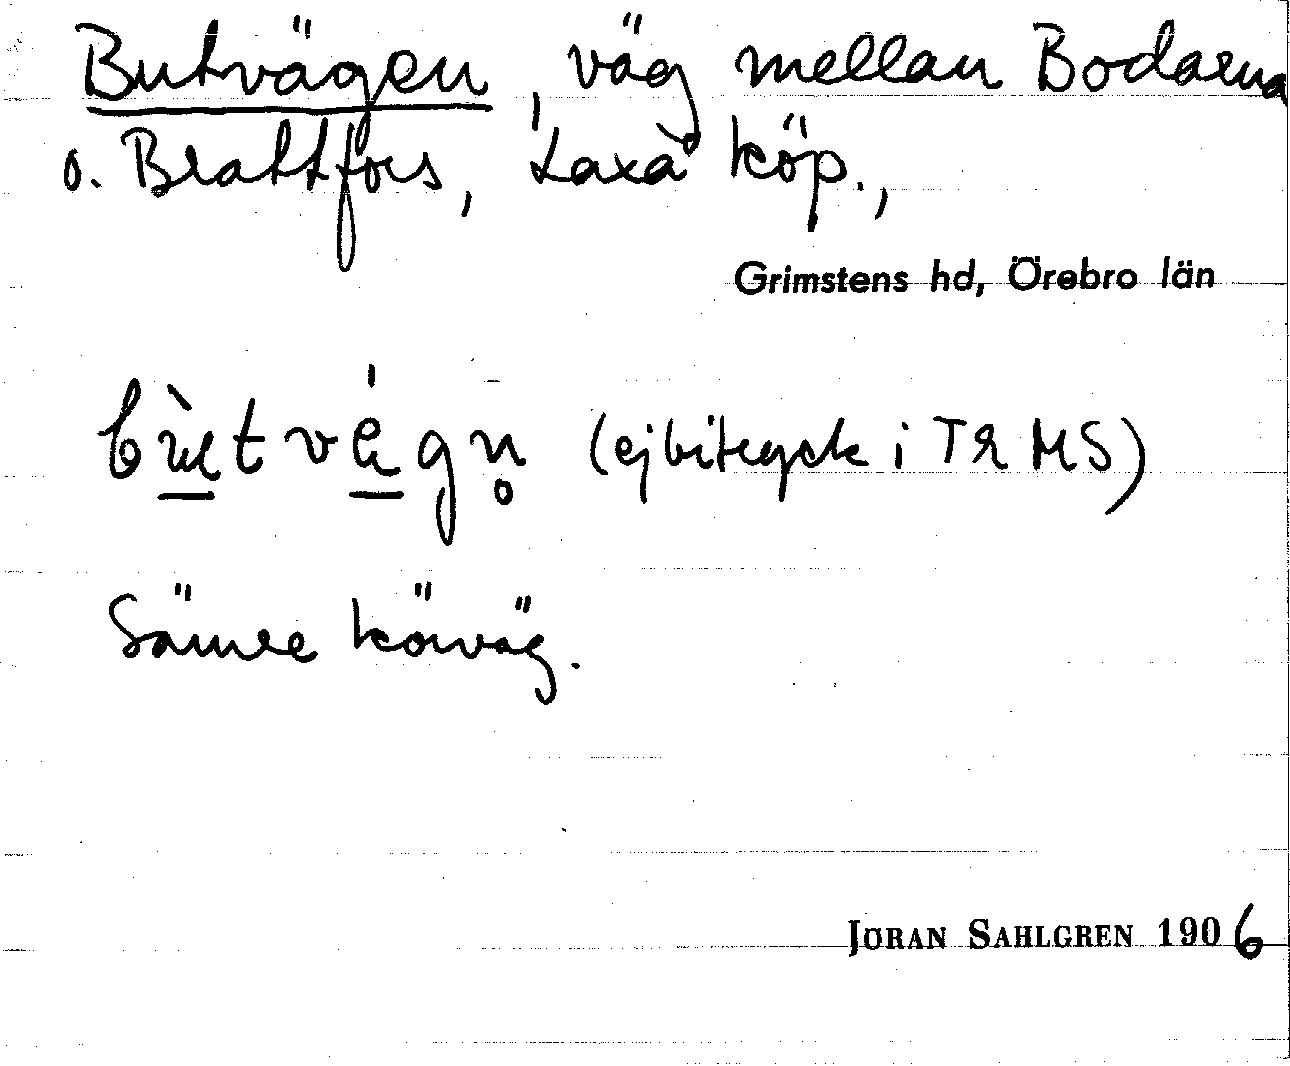 Butvägen, väg mellan Bodarna
o. Brattfors, Laxå köp.,
Grimstens hd, Örebro län
(ej bitryck i TRMS)
Sämre körväg.
JÖRAN SAHLGREN 1906